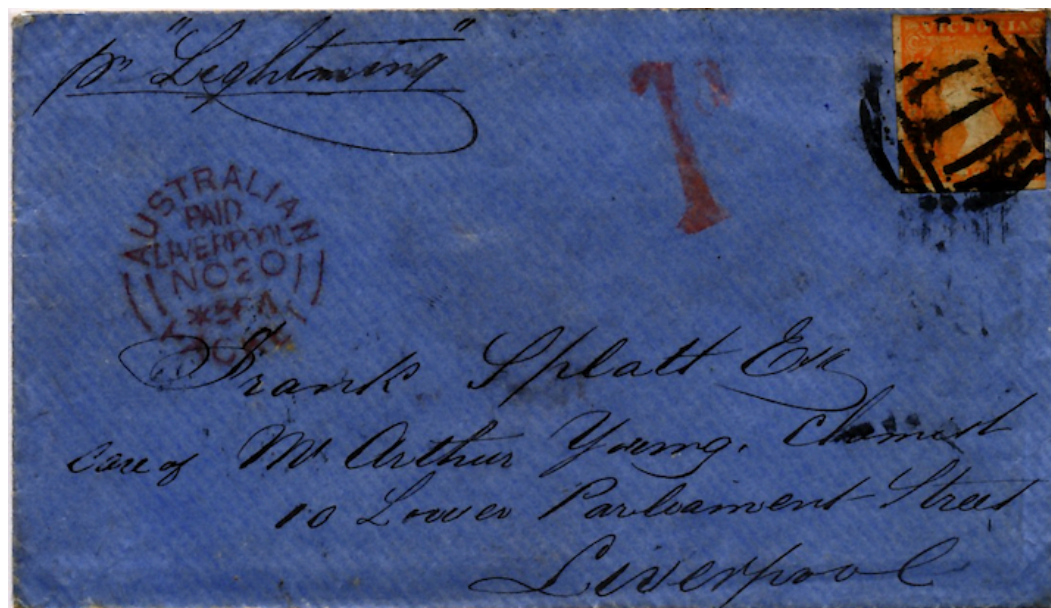 pr "Lightning"
1s
VICTORIA
AUSTRALIAN
PAID
LIVERPOOL
NO 20
PACKET
Frank Splatt Esq
Care of Mr Arthur Young. Chemist
10 Lower Parliament Street
Liverpool